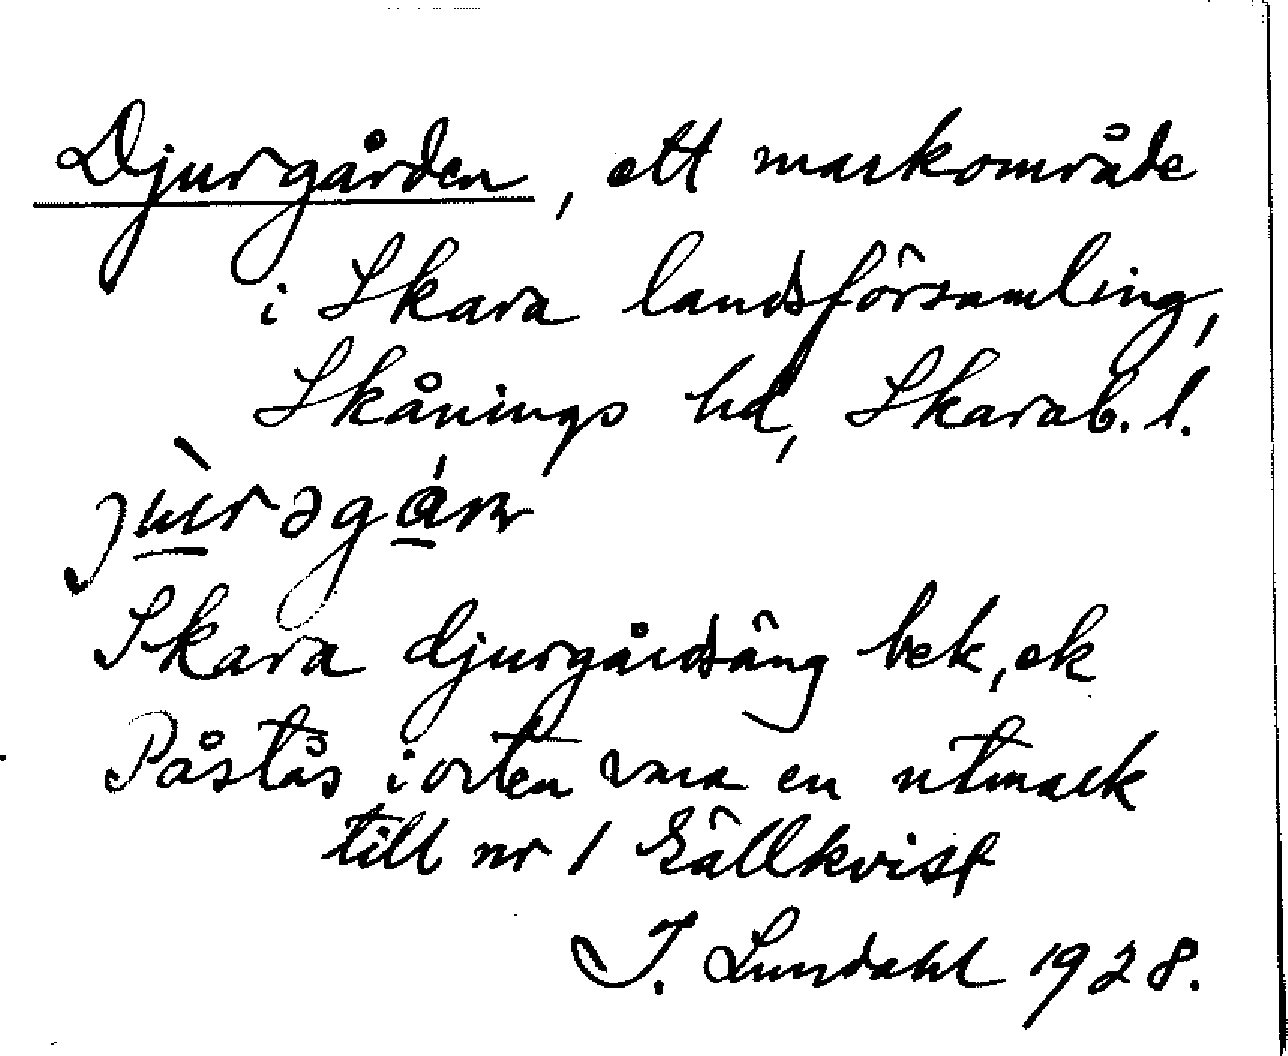 Djurgården, ett markområde
i Skara landsförsamling,
Skånings hd, Skarab. l.
Skara djurgårdsäng bek, ek
Påstås i orten vara en utmark
till nr 1 Sällkvist
I. Lundahl 1928.